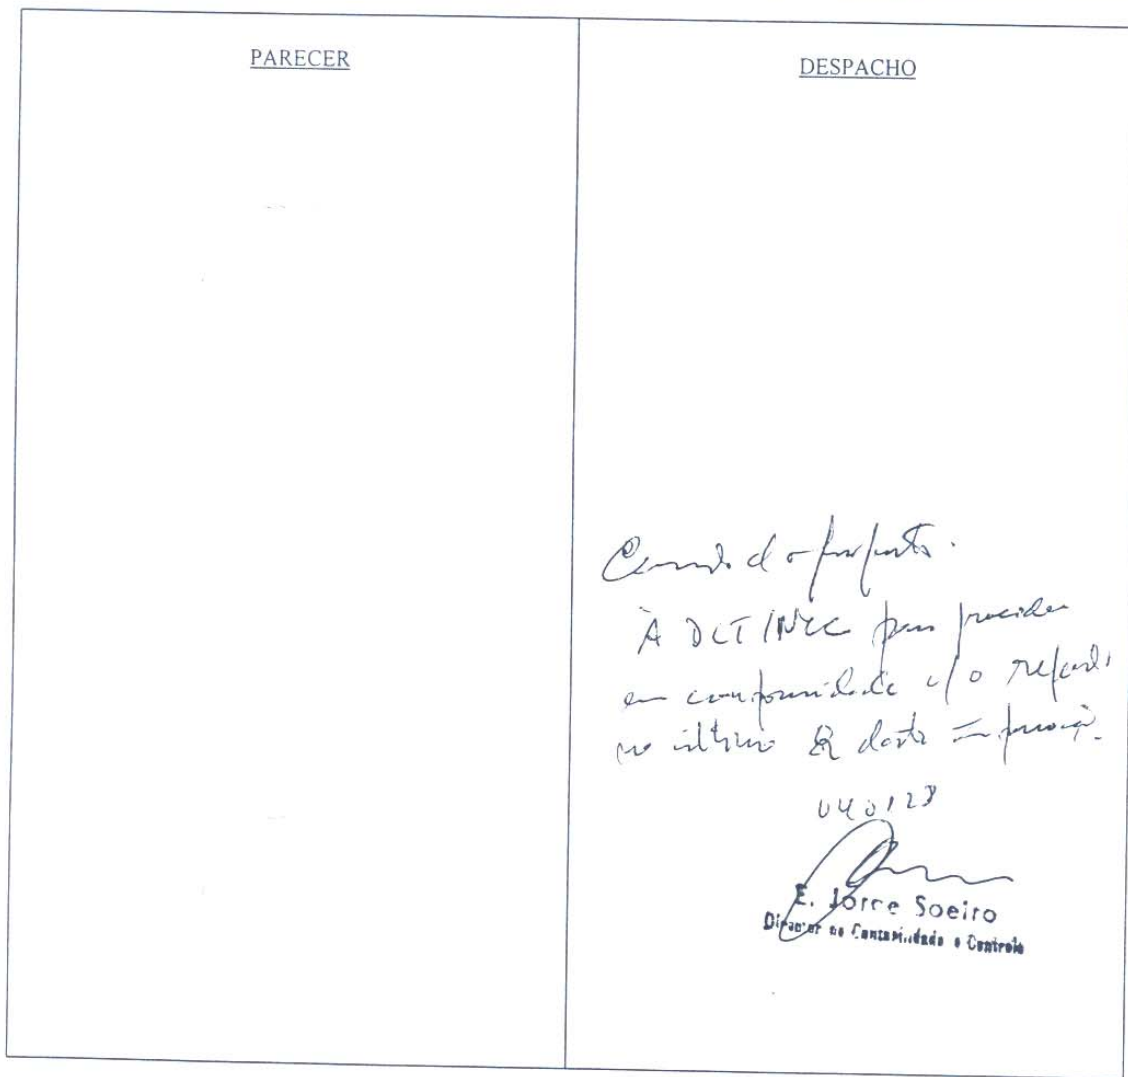 PARECER
DESPACHO
Concordo c/ o proposto.
À DCT/NCC para proceder
em conformidade c/ o referido
no último § desta informação.
040128
E. Jorge Soeiro
Director de Contabilidade e Controle